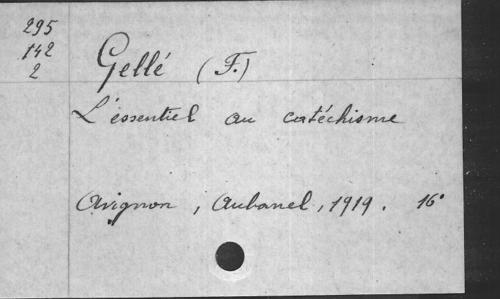 295
142
2
Gellé (F.)
L'éssentiel au catéchisme
Avignon, Aubanel, 1919. 16°